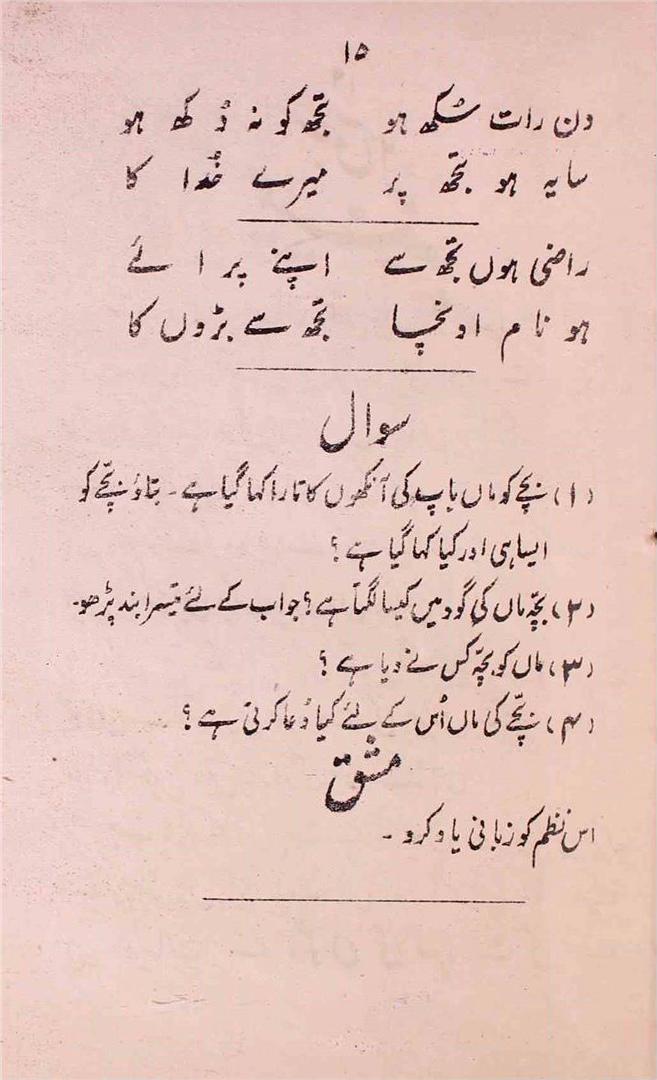 ۱۵
دن رات سُکھ ہو تجھ کو نہ دُکھ ہو
سایہ ہو تجھ پر میرے خُدا کا
راضی ہوں تجھ سے اپنے پرائے
ہو نام اونچا تجھ سے بڑوں کا
سوال
(۱) بچّے کو ماں باپ کی آنکھوں کا تارا کہا گیا ہے۔ بتاؤ بچّے کو
ایسا ہی اور کیا کہا گیا ہے؟
(۲) بچّہ ماں کی گود میں کیسا لگتا ہے؟ جواب کے لئے تیسرا بند پڑھو۔
(۳) ماں کو بچّہ کس نے دیا ہے؟
(۴) بچّے کی ماں اُس کے لئے کیا دُعا کرتی ہے؟
مشق
اس نظم کو زبانی یاد کرو۔